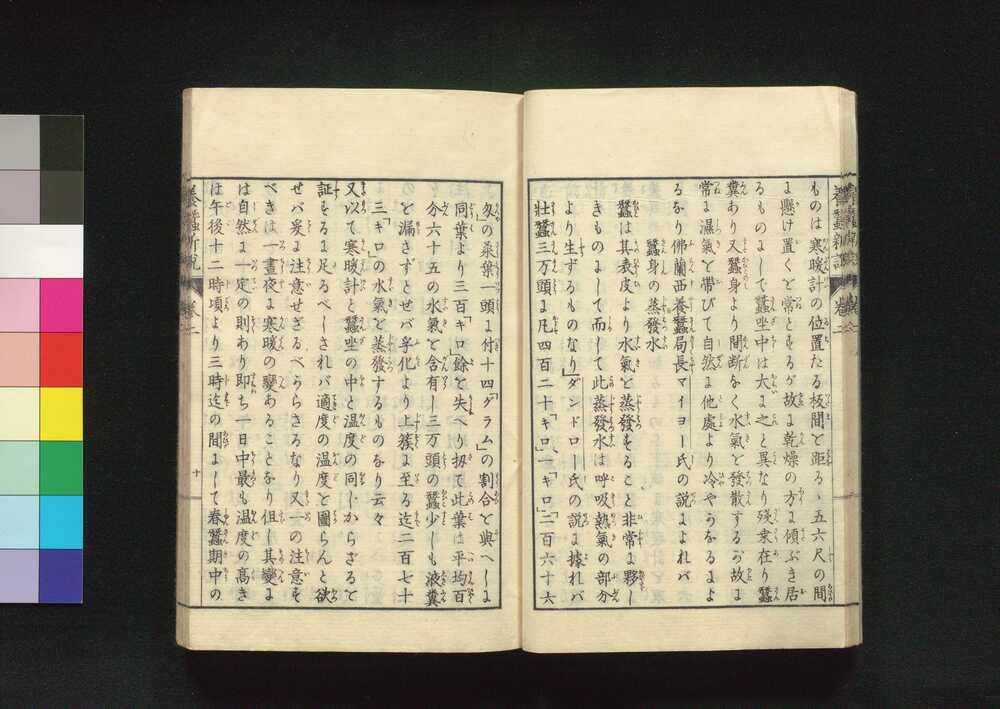 ものは寒暖計の位置たる板間を距る、五六尺の間
に懸け置くを常とするが故に乾燥の方に傾ぶき居
るものにして蠶坐中は大に之と異なり殘桒在り蠶
糞あり又蠶身より間断なく水氣を發散するが故に
常に濕氣を帯びて自然に他處より冷やうなるによ
るなり佛蘭西養蠶局長マイヨー氏の説によれバ
蠶身の蒸發水
蠶は其表皮より水氣を蒸發すること非常に夥し
きものにして而して此蒸發水は呼吸熱氣の部分
より生ずるものなり「ダンドロー氏の説に據れバ
壮蠶三万頭に凡四百二十「キロ」一「キロ」二百六十六
匁の桒葉一頭に付十四「グラム」の割合を與へしに
同葉より三百「キロ」餘を失へり扨て此葉は平均百
分六十五の水氣を含有し三万頭の蠶少しも液糞
を漏さずとせバ孚化より上簇に至る迄二百七十
三「キロ」の水氣を蒸發するものなり云々
又以て寒暖計と蠶坐の中と温度の同しからざるを
証するに足るべしされバ適度の温度を圖らんと欲
せバ爰に注意せざるべからざるなり又一の注意す
べきは一晝夜に寒暖の變あることなり但し其變に
は自然に一定の則あり即ち一日中最も温度の髙き
は午後十二時頃より三時迄の間にして春蠶期中の
養蠶新説
卷一
十